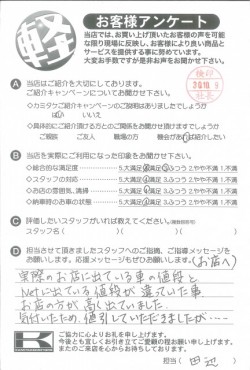 軽
お客様アンケート
当店では、お買い上げ頂いたお客様の声を可能
な限り現場に反映し、お客様により良い商品と
サービスを提供する事に努めています。
大変お手数ですが是非お声をお聞かせ下さい。
検印
30.10.9
A 当店はご紹介を大切にしております。
ご紹介キャンペーンについてお聞かせ下さい。
◇カミタケご紹介キャンペーンのご説明はありましたでしょうか
はい いいえ
◇具体的にご紹介頂ける方とのご関係をお聞かせ頂けますでしょうか
ご親族 ご友人 職場の方 機会があれば
B 当店を実際にご利用になった印象をお聞かせ下さい。
◇総合的な満足度 5.大満足 4.満足 3.ふつう 2.やや不満 1.不満
◇スタッフの対応 5.大満足 4.満足 3.ふつう 2.やや不満 1.不満
◇お店の雰囲気、清掃 5.大満足 4.満足 3.ふつう 2.やや不満 1.不満
◇納車時のお車の状態 5.大満足 4.満足 3.ふつう 2.やや不満 1.不満
C 評価したいスタッフがいれば教えてください。(複数回答可)
スタッフ名( )( )
D 担当させて頂きましたスタッフへのご指摘、ご指導メッセージを
お願いします。応援メッセージもぜひお願いします。(お店へ)
実際のお店に出ている車の値段と
Netに出ている値段が違っていた事
お店の方が高く出ていました
気付いたため、値引していただきましたが……
K
ご協力に心よりお礼を申し上げます。
今後とも宜しくお引き立てご愛顧の程お願い申し上げます。
またのご来店を心からお待ちしております。
担当( 田辺 )